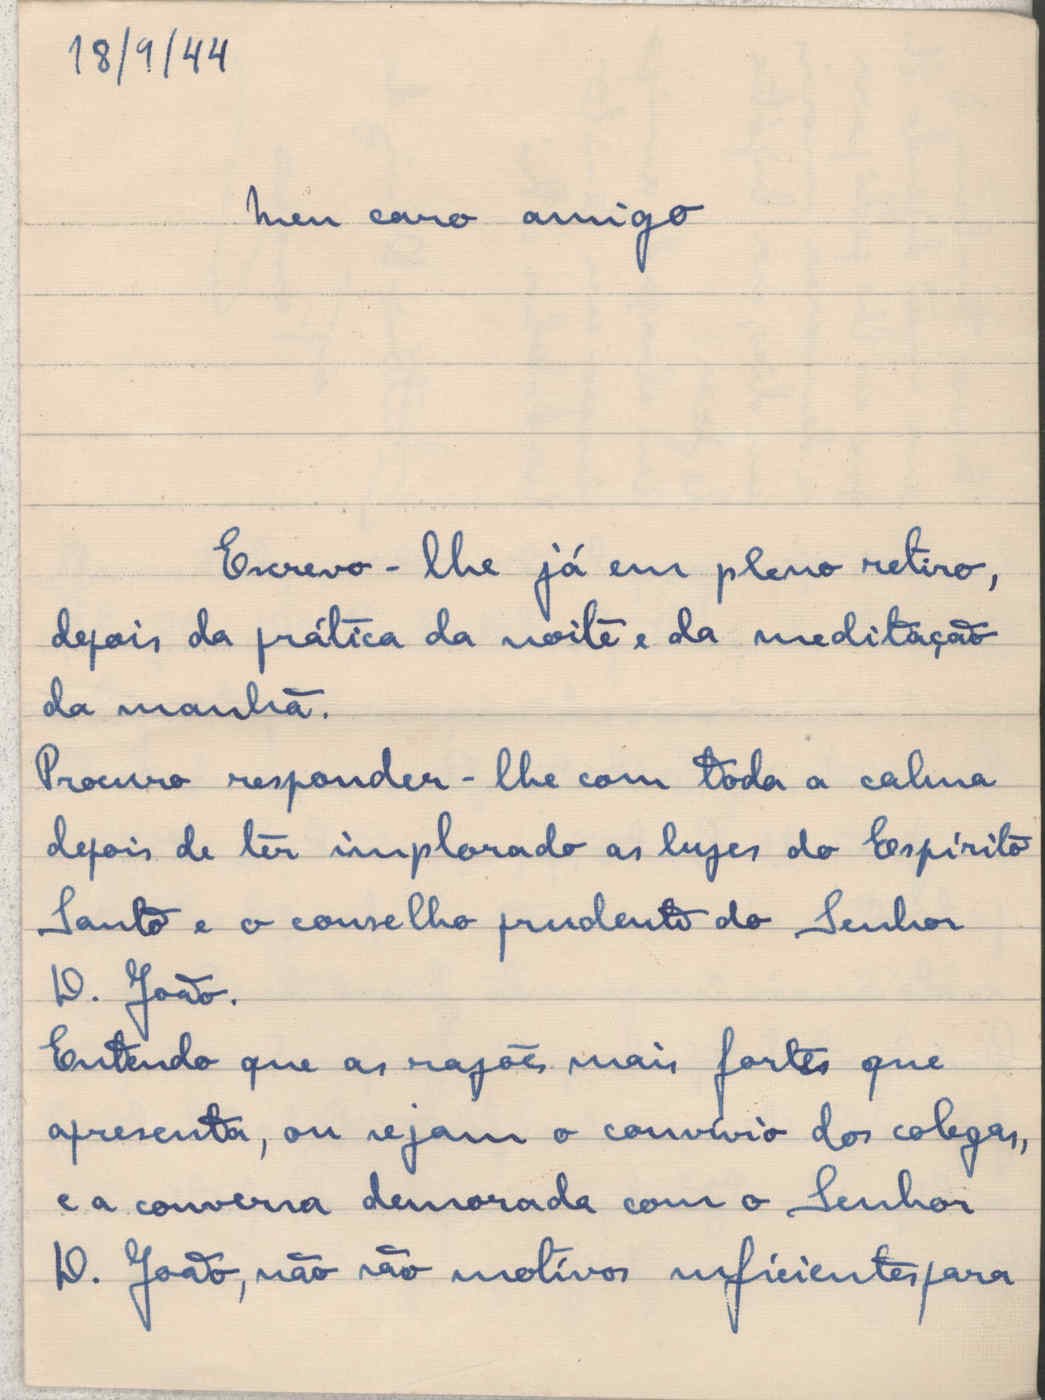 18/9/44
Meu caro amigo
Escrevo-lhe já em pleno retiro,
depois da prática da noite e da meditação
da manhã.
Procuro responder-lhe com toda a calma
depois de ter implorado as luzes do Espírito
Santo e o conselho prudente do Senhor
D. João.
Entendo que as razões mais fortes que
apresenta, ou sejam o convívio dos colegas,
e a conversa demorada com o Senhor
D. João, não são motivos suficientes para